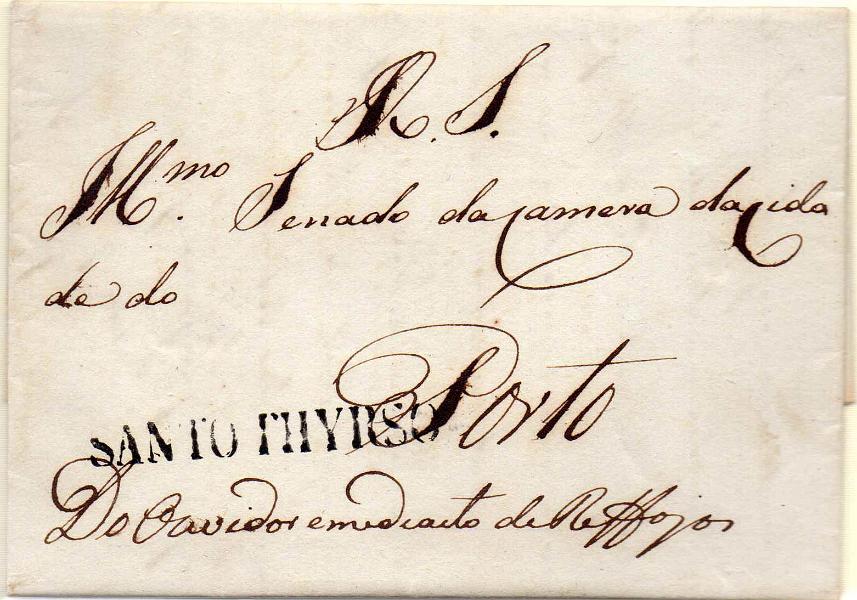 R. S.
Illmo. Senado da camera da cida
de do
Porto
SANTO THYRSO
Do Ouvidor emediacto de Reffojos